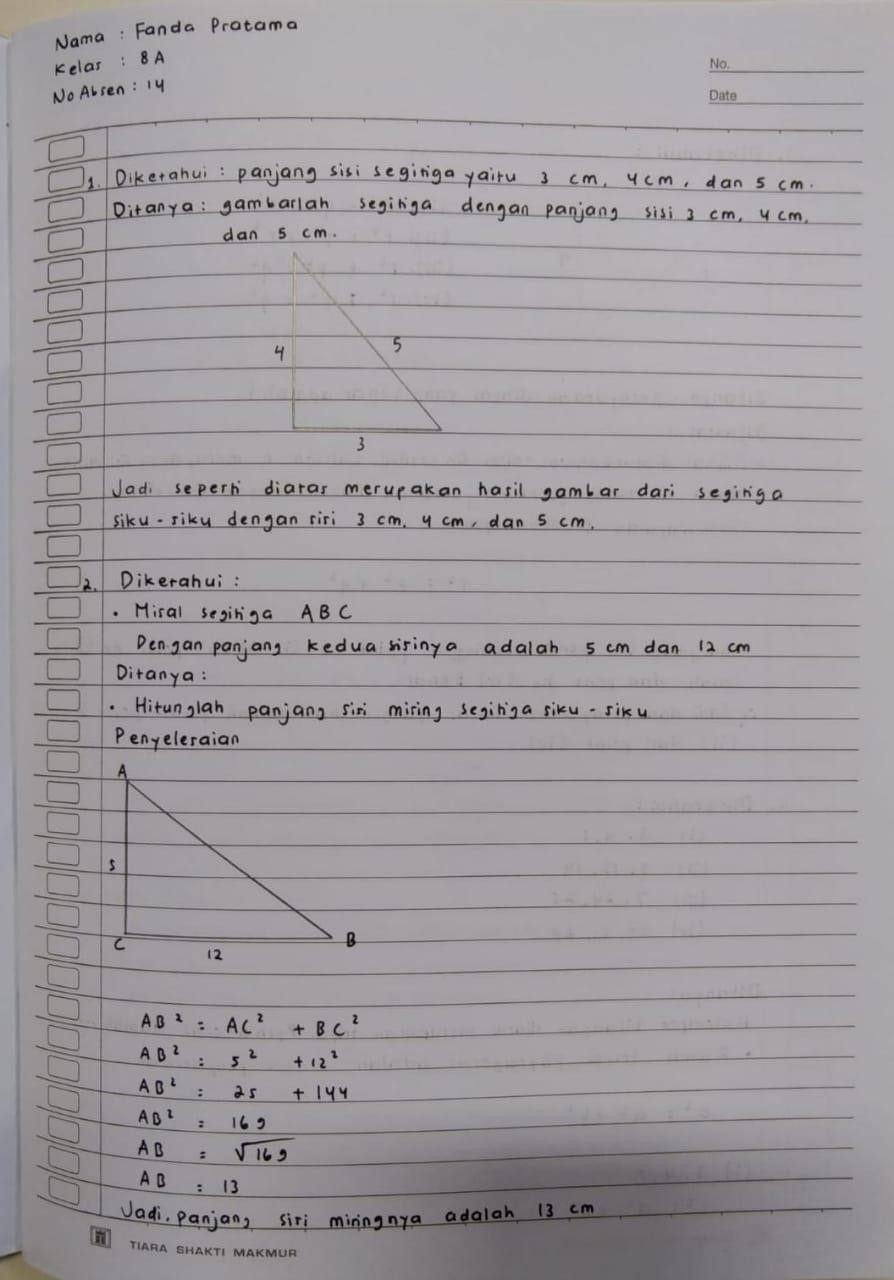 Nama : Fanda Pratama
Kelas : 8A
No Absen : 14
No.
Date
1. Diketahui : panjang sisi segitiga yaitu 3 cm, 4 cm, dan 5 cm.
Ditanya : gambarlah segitiga dengan panjang sisi 3 cm, 4 cm,
dan 5 cm.
4
5
3
Jadi seperti diatas merupakan hasil gambar dari segitiga
siku-siku dengan sisi 3 cm, 4 cm, dan 5 cm.
2. Diketahui :
• Misal segitiga ABC
Dengan panjang kedua sisinya adalah 5 cm dan 12 cm
Ditanya :
• Hitunglah panjang sisi miring segitiga siku-siku
Penyelesaian
A
5
C
B
12
AB² = AC² + BC²
AB² = 5² + 12²
AB² = 25 + 144
AB² = 169
AB = √169
AB = 13
Jadi, panjang sisi miringnya adalah 13 cm
TIARA SHAKTI MAKMUR